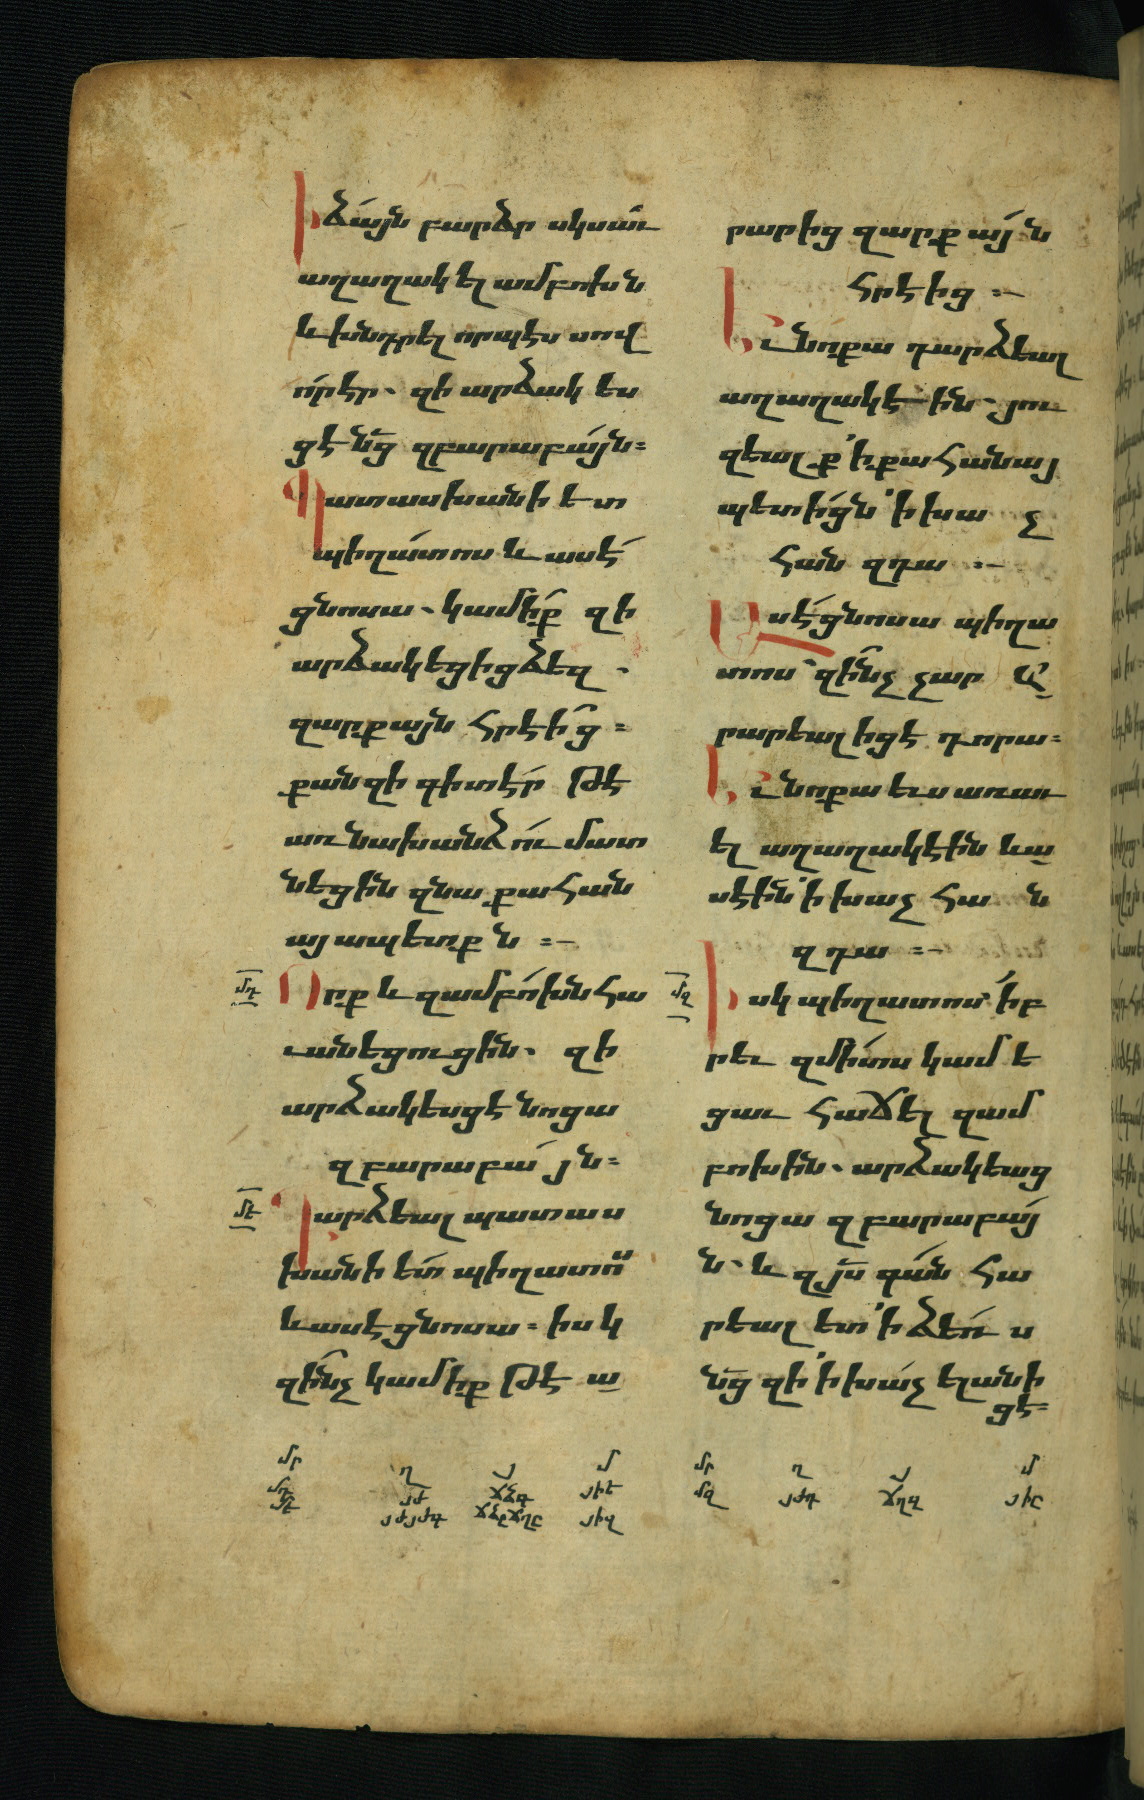 Ի ձայն բարձր սկսաւ
աղաղակել ամբոխն
և խնդրել որպէս սով
որ էր. զի արձակ ես
ցէ ն̅ց զբարաբայն։
Պատասխանի ետ
պիղատոս և ասէ
ցնոսա. կամի՞ք զի
արձակեցից ձեզ.
զարքայն հրէից։
քանզի գիտէր թէ
առ նախանձու մատ
նեցին զնա քահան
այապետքն։
մդ
Որք և զամբոխն հա
ւանեցուցին. զի
արձակեսցէ նոցա
զբարաբայն։
մե
Դարձեալ պատաս
խանի ետ պիղատոս
և ասէ ցնոսա. իսկ
զի՞նչ կամիք թէ ա
րարից զարքայն
հրէից։
Եւ նոքա դարձեալ
աղաղակէին. յու
զեալք ի քահանայ
պետիցն ի խաչ
հան զդա։
Ասէ ցնոսա պիղա
տոս զի՞նչ չար ա
րարեալ իցէ դորա։
Եւ նոքա ևս առաւ
ել աղաղակէին և ա
սէին ի խաչ հան
զդա։
մզ
Իսկ պիղատոս իբ
րև զմիտս կամ ե
ցաւ հաճել զամ
բոխին. արձակեաց
նոցա զբարաբայ
ն. և զյս̅ գան հա
րեալ ետ ի ձեռս
ն̅ց զի ի խաչ ելանի
ցէ։
մր ղ յ մ մր ղ յ մ